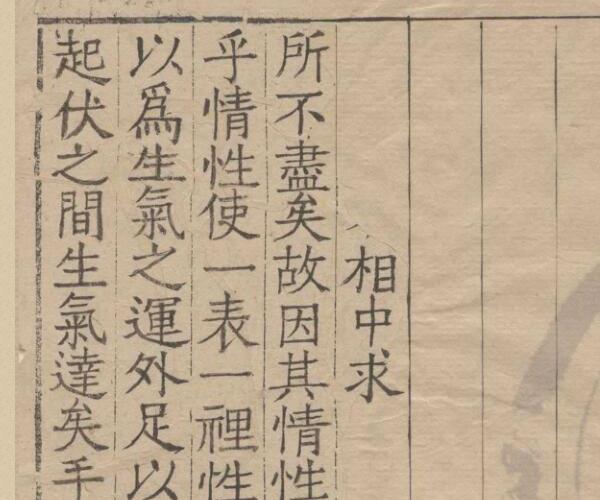 相中求
所不盡矣故因其情性
乎情性使一表一裡性
以爲生氣之運外足以
起伏之間生氣達矣手